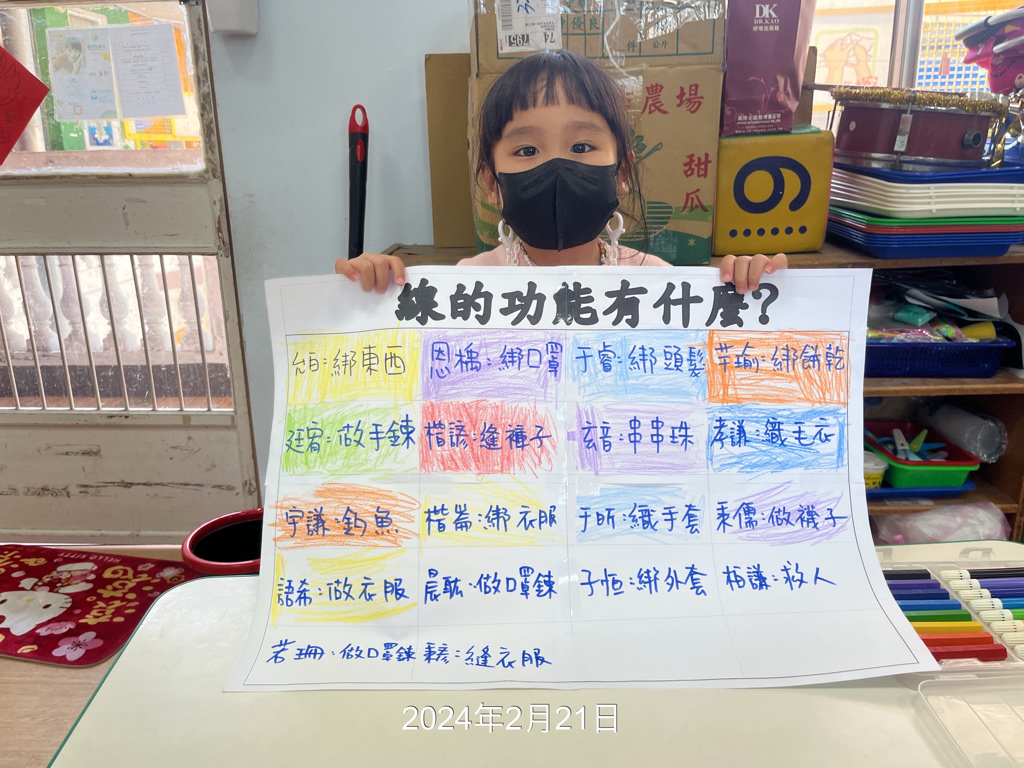 DK
DR.KAO
795
優良
件 公斤
農場
甜瓜
線的功能有什麼?
允白:綁東西 恩橋:綁口罩 于睿:綁頭髮 苹瑜:綁餅乾
廷宥:做手鍊 楷諺:逢褲子 玄音:串串珠 孝謙:織毛衣
宇謙:釣魚 楷崙:綁衣服 于昕:織手套 秉儒:做襪子
語希:做衣服 晨耘:做口罩鍊 子恒:綁外套 柏謙:救人
若珊:做口罩鍊 秉諺:縫衣服
HELLO KITTY
2024年2月21日